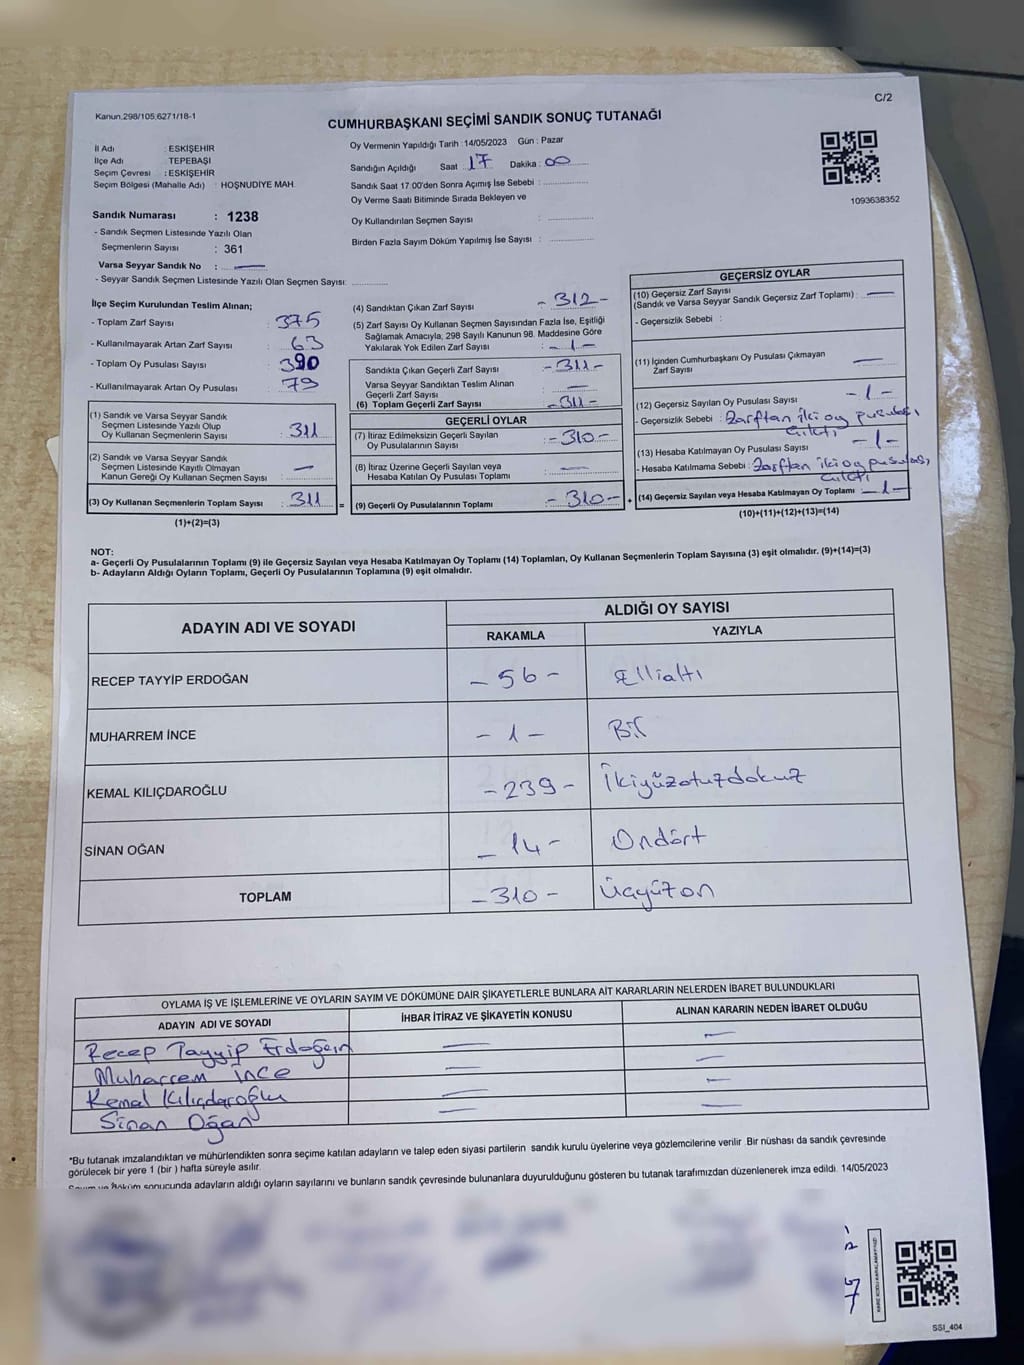 C/2
Kanun.298/105,6271/18-1
CUMHURBAŞKANI SEÇİMİ SANDIK SONUÇ TUTANAĞI
İl Adı : ESKİŞEHİR
İlçe Adı : TEPEBAŞI
Seçim Çevresi : ESKİŞEHİR
Seçim Bölgesi (Mahalle Adı) : HOŞNUDİYE MAH.
Oy Vermenin Yapıldığı Tarih :14/05/2023 Gün : Pazar
Sandığın Açıldığı Saat : 17 Dakika : 00
Sandık Saat 17:00'den Sonra Açımış İse Sebebi :
Oy Verme Saati Bitiminde Sırada Bekleyen ve
Oy Kullandırılan Seçmen Sayısı :
Birden Fazla Sayım Döküm Yapılmış İse Sayısı :
1093638352
Sandık Numarası : 1238
- Sandık Seçmen Listesinde Yazılı Olan
Seçmenlerin Sayısı : 361
Varsa Seyyar Sandık No :
- Seyyar Sandık Seçmen Listesinde Yazılı Olan Seçmen Sayısı:
İlçe Seçim Kurulundan Teslim Alınan;
- Toplam Zarf Sayısı : 375
- Kullanılmayarak Artan Zarf Sayısı : 63
- Toplam Oy Pusulası Sayısı : 390
- Kullanılmayarak Artan Oy Pusulası : 79
(1) Sandık ve Varsa Seyyar Sandık
Seçmen Listesinde Yazılı Olup
Oy Kullanan Seçmenlerin Sayısı : 311
(2) Sandık ve Varsa Seyyar Sandık
Seçmen Listesinde Kayıtlı Olmayan
Kanun Gereği Oy Kullanan Seçmen Sayısı : —
(3) Oy Kullanan Seçmenlerin Toplam Sayısı : 311 =
(1)+(2)=(3)
(4) Sandıktan Çıkan Zarf Sayısı - 312 -
(5) Zarf Sayısı Oy Kullanan Seçmen Sayısından Fazla İse, Eşitliği
Sağlamak Amacıyla, 298 Sayılı Kanunun 98. Maddesine Göre
Yakılarak Yok Edilen Zarf Sayısı : - 1 -
Sandıkta Çıkan Geçerli Zarf Sayısı - 311 -
Varsa Seyyar Sandıktan Teslim Alınan
Geçerli Zarf Sayısı —
(6) Toplam Geçerli Zarf Sayısı - 311 -
GEÇERLİ OYLAR
(7) İtiraz Edilmeksizin Geçerli Sayılan
Oy Pusulalarının Sayısı : - 310 -
(8) İtiraz Üzerine Geçerli Sayılan veya
Hesaba Katılan Oy Pusulası Toplamı : —
(9) Geçerli Oy Pusulalarının Toplamı : - 310 - +
GEÇERSİZ OYLAR
(10) Geçersiz Zarf Sayısı
(Sandık ve Varsa Seyyar Sandık Geçersiz Zarf Toplamı) : —
- Geçersizlik Sebebi :
(11) İçinden Cumhurbaşkanı Oy Pusulası Çıkmayan
Zarf Sayısı —
(12) Geçersiz Sayılan Oy Pusulası Sayısı - 1 -
- Geçersizlik Sebebi : Zarftan iki oy pusulası
çıktı
(13) Hesaba Katılmayan Oy Pusulası Sayısı - 1 -
- Hesaba Katılmama Sebebi : Zarftan iki oy pusulası
çıktı
(14) Geçersiz Sayılan veya Hesaba Katılmayan Oy Toplamı - 1 -
(10)+(11)+(12)+(13)=(14)
NOT:
a- Geçerli Oy Pusulalarının Toplamı (9) ile Geçersiz Sayılan veya Hesaba Katılmayan Oy Toplamı (14) Toplamları, Oy Kullanan Seçmenlerin Toplam Sayısına (3) eşit olmalıdır. (9)+(14)=(3)
b- Adayların Aldığı Oyların Toplamı, Geçerli Oy Pusulalarının Toplamına (9) eşit olmalıdır.
ADAYIN ADI VE SOYADI
ALDIĞI OY SAYISI
RAKAMLA YAZIYLA
RECEP TAYYİP ERDOĞAN - 56 - Ellialtı
MUHARREM İNCE - 1 - Bir
KEMAL KILIÇDAROĞLU - 239 - İkiyüzotuzdokuz
SİNAN OĞAN - 14 - Ondört
TOPLAM - 310 - Üçyüzon
OYLAMA İŞ VE İŞLEMLERİNE VE OYLARIN SAYIM VE DÖKÜMÜNE DAİR ŞİKAYETLERLE BUNLARA AİT KARARLARIN NELERDEN İBARET BULUNDUKLARI
ADAYIN ADI VE SOYADI İHBAR İTİRAZ VE ŞİKAYETİN KONUSU ALINAN KARARIN NEDEN İBARET OLDUĞU
Recep Tayyip Erdoğan — —
Muharrem İnce — —
Kemal Kılıçdaroğlu — —
Sinan Oğan — —
*Bu tutanak imzalandıktan ve mühürlendikten sonra seçime katılan adayların ve talep eden siyasi partilerin sandık kurulu üyelerine veya gözlemcilerine verilir. Bir nüshası da sandık çevresinde
görülecek bir yere 1 (bir ) hafta süreyle asılır.
Sayım ve döküm sonucunda adayların aldığı oyların sayılarını ve bunların sandık çevresinde bulunanlara duyurulduğunu gösteren bu tutanak tarafımızdan düzenlenerek imza edildi. 14/05/2023
SSI_404